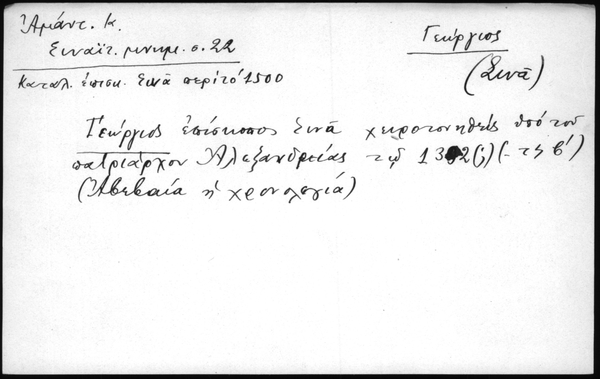 Ἀμάντ. Κ.
Σιναϊτ. μνημ. σ. 22
Καταλ. ἐπισκ. Σινᾶ περί τό 1500
Γεώργιος
(Σινᾶ)
Γεώργιος ἐπίσκοπος Σινᾶ χειροτονηθείς ὑπό τοῦ
πατριάρχου Ἀλεξανδρείας τῷ
(Ἀβεβαία ἡ χρονολογία)